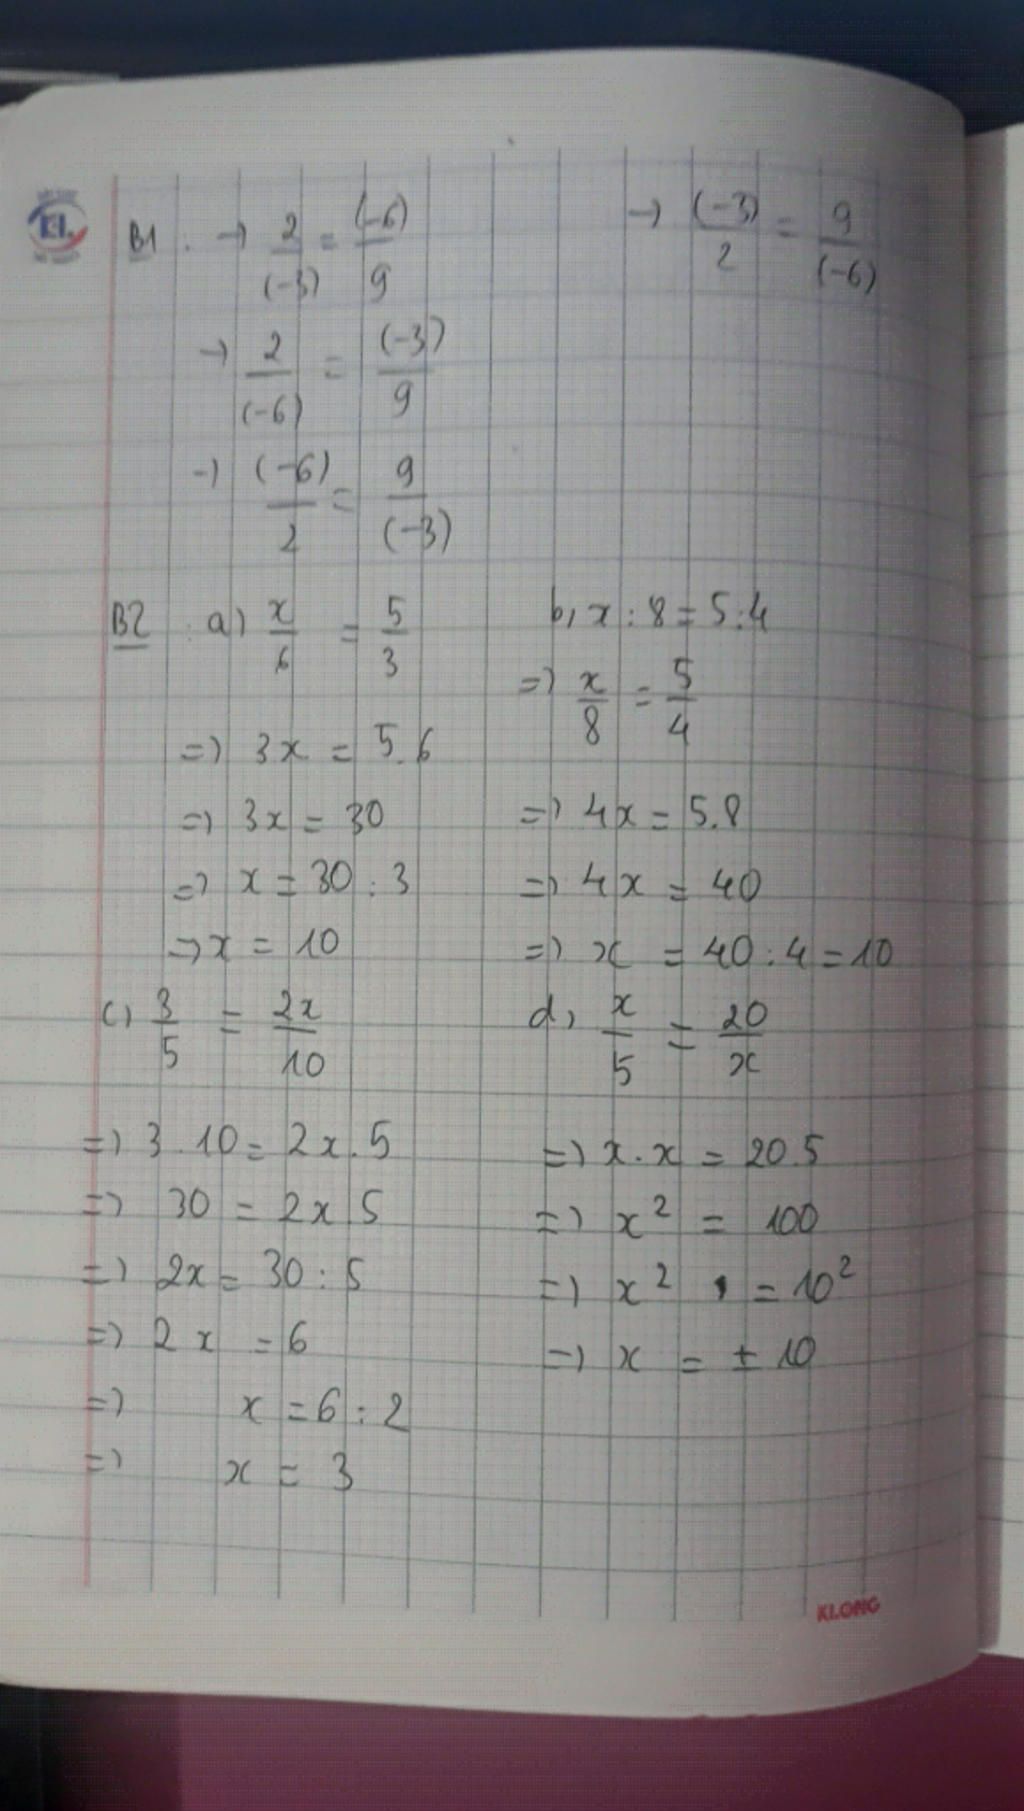 B1 : → 2/(-3) = (-6)/9
→ (-3)/2 = 9/(-6)
→ 2/(-6) = (-3)/9
→ (-6)/2 = 9/(-3)
B2 : a) x/6 = 5/3
=> 3x = 5.6
=> 3x = 30
=> x = 30 : 3
=> x = 10
b, x : 8 = 5 : 4
=> x/8 = 5/4
=> 4x = 5.8
=> 4x = 40
=> x = 40 : 4 = 10
c) 3/5 = 2x/10
=> 3 . 10 = 2x . 5
=> 30 = 2x 5
=> 2x = 30 : 5
=> 2x = 6
=> x = 6 : 2
=> x = 3
d, x/5 = 20/x
=> x . x = 20.5
=> x² = 100
=> x² = 10²
=> x = ± 10
KLONG